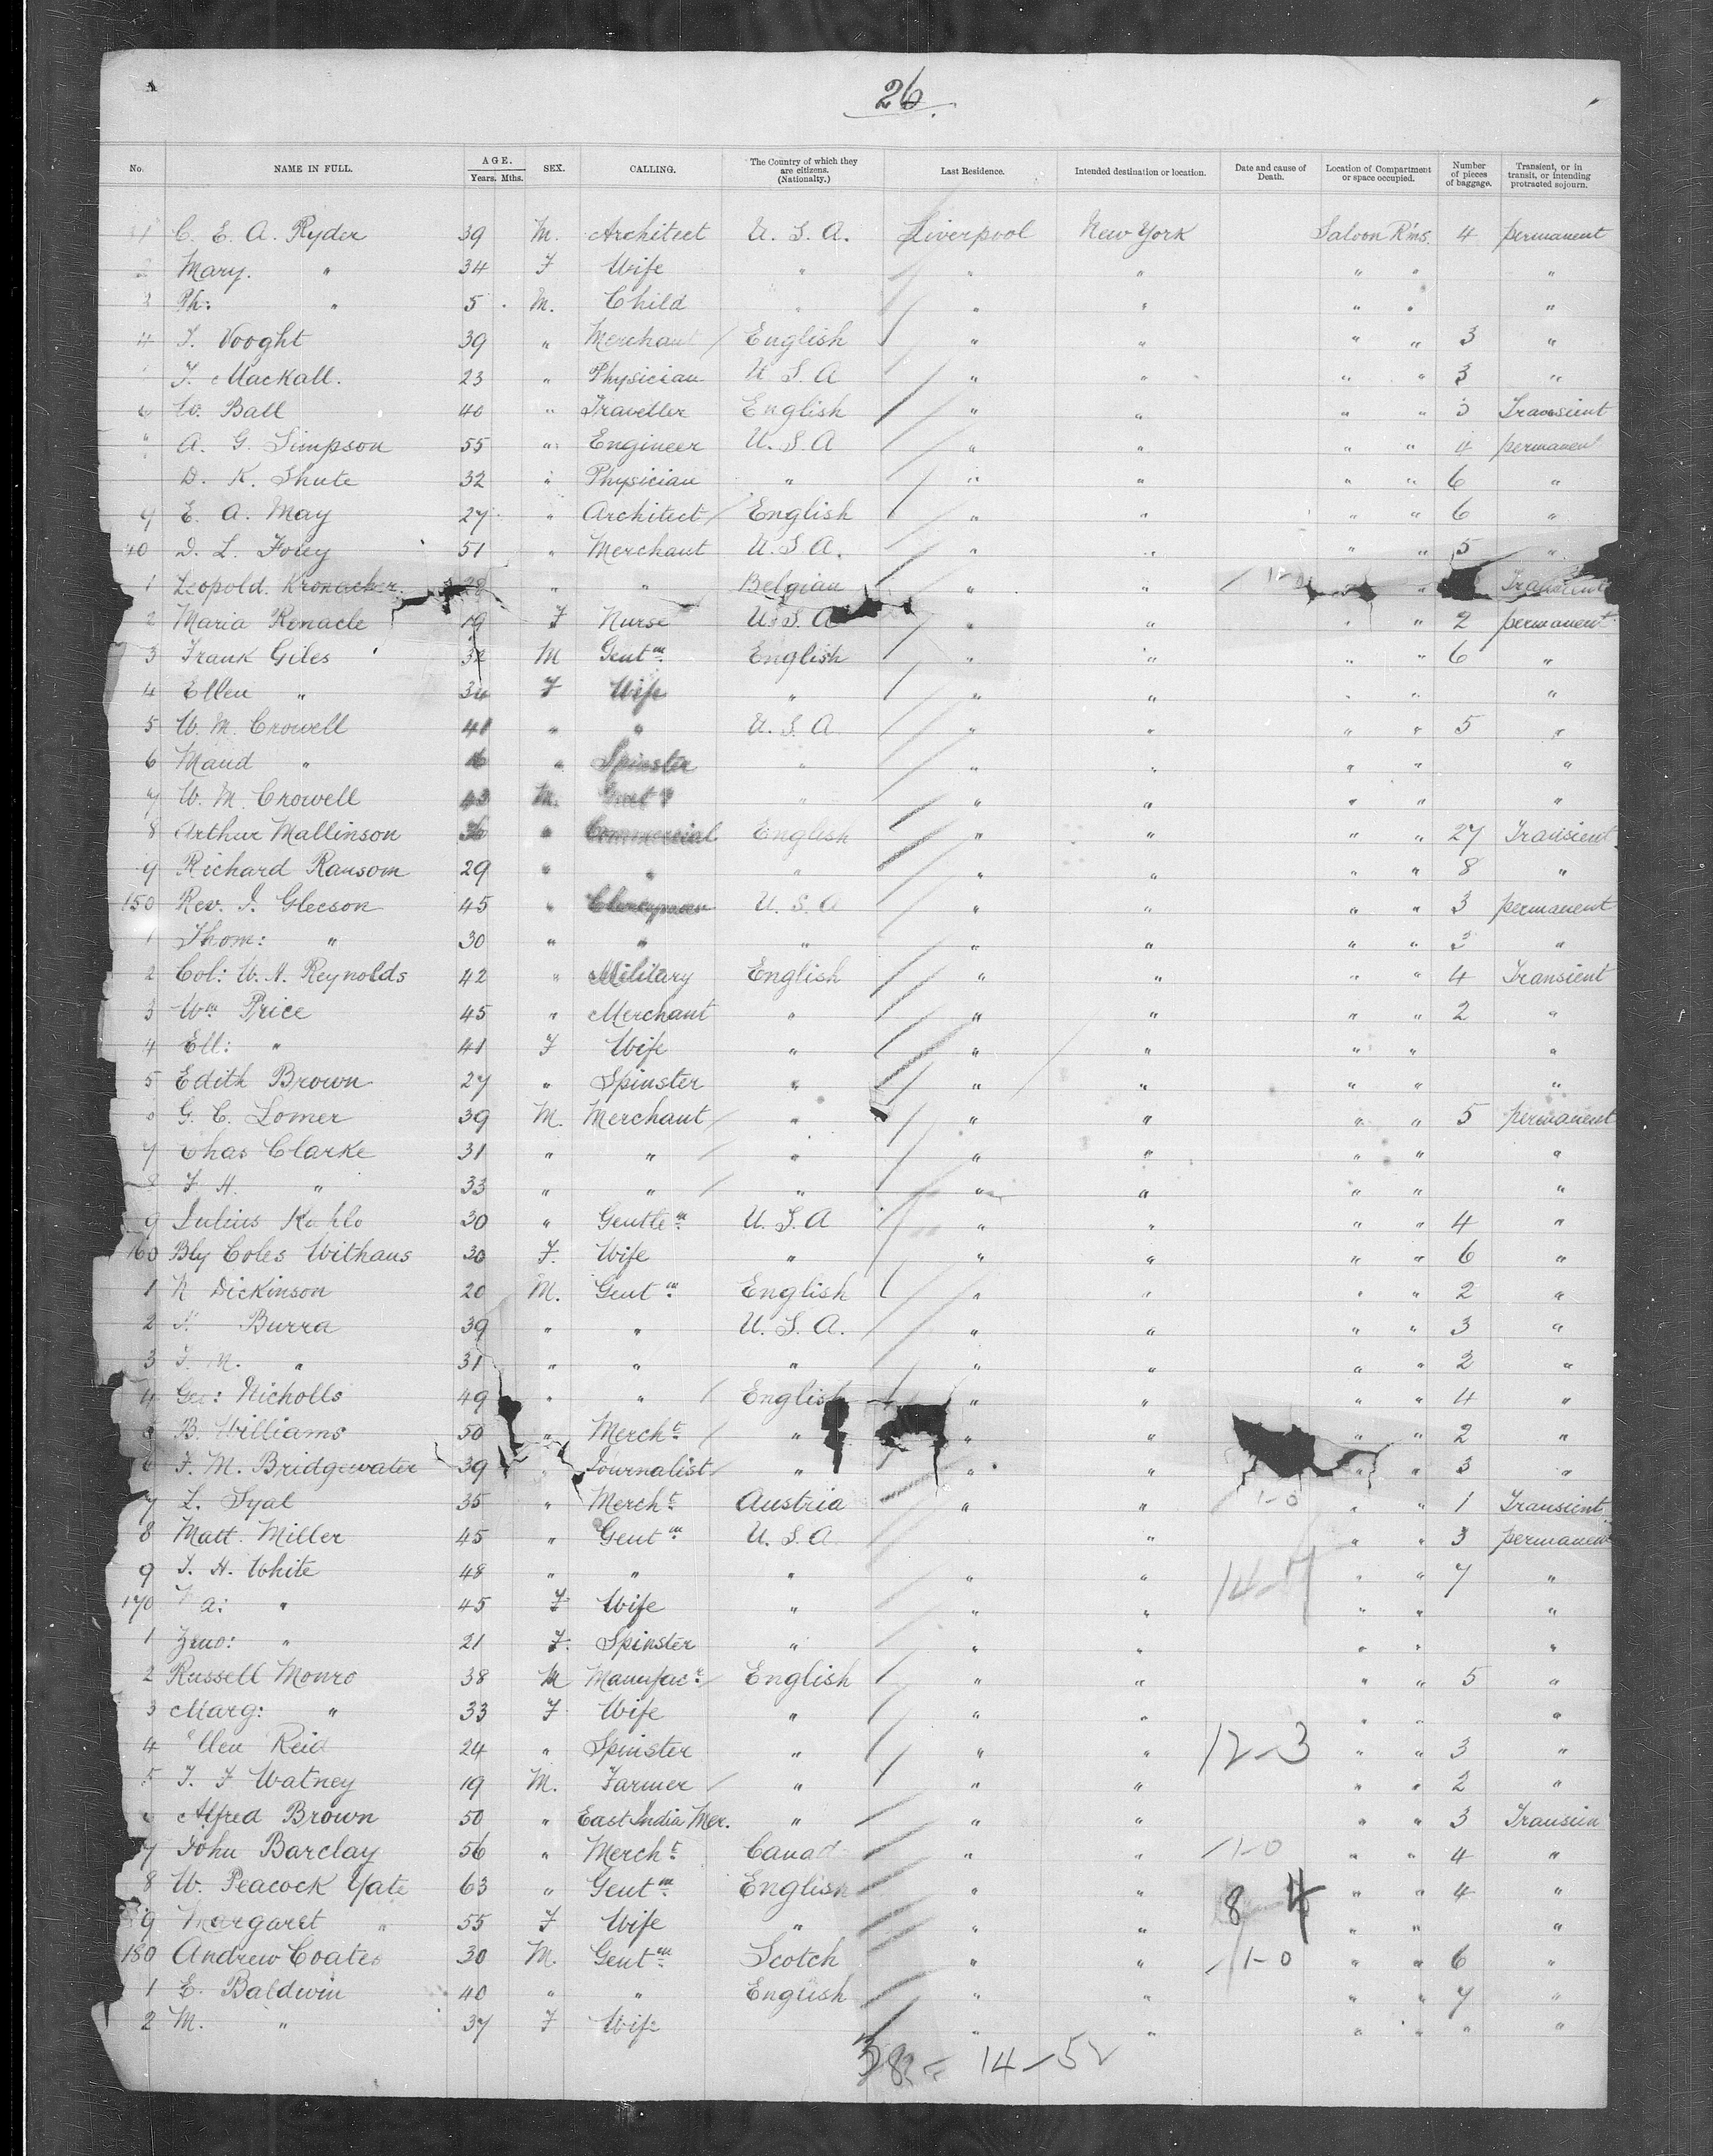 26.
No. NAME IN FULL. AGE. Years. Mths. SEX. CALLING. The Country of which they are citizens. (Nationalty.) Last Residence. Intended destination or location. Date and cause of Death. Location of Compartment or space occupied. Number of pieces of baggage. Transient, or in transit, or intending protracted sojourn.
1 C. E. A. Ryder 39 M. Architect U. S. A. Liverpool New York Saloon R'ms. 4 permanent
2 Mary. " 34 F Wife " " " " " "
3 Ph: " 5 M. Child " " " " " "
4 T. Vooght 39 " Merchant English " " " " 3 "
F. Mackall. 23 " Physician U. S. A " " " " 3 "
6 W. Ball 40 " Traveller English " " " " 3 Transient
A. G. Simpson 55 " Engineer U. S. A " " " " 4 permanent
D. K. Shute 32 " Physician " " " " " 6 "
9 E. A. May 27 " Architect English " " " " 6 "
40 D. L. 51 " Merchant U. S. A. " " " " 5 "
1 Leopold. Kronacker. 28 " " Belgian " " 1-0 " " Transient
2 Maria Renacle 19 F Nurse U. S. A " " " " 2 permanent
3 Frank Giles 32 M Gentm English " " " " 6 "
4 Ellen " 34 F Wife " " " " " "
5 W. M. Crowell 41 " " U. S. A. " " " " 5 "
6 Maud " 16 " Spinster " " " " " "
7 W. M. Crowell 43 M. " " " " " "
8 Arthur Mallinson 36 " Commercial English " " " " 27 Transient
9 Richard Ransom 29 " " " " " " " 8 "
150 Rev. J. Gleeson 45 " Clergyman U. S. A " " " " 3 permanent
1 Thom: " 30 " " " " " " " 3 "
2 Col: W. H. Reynolds 42 " Military English " " " " 4 Transient
3 Wm Price 45 " Merchant " " " " " 2 "
4 Ell: " 41 F Wife " " " " " "
5 Edith Brown 27 " Spinster " " " " " "
6 G. C. Lomer 39 M. Merchant " " " " " 5 permanent
7 Chas Clarke 31 " " " " " " " "
8 F H. " 33 " " " " " " " "
9 Julius Kahlo 30 " Gentlem U. S. A " " " " 4 "
160 Bly Coles Withaus 30 F. Wife " " " " " 6 "
1 N Dickinson 20 M. Gentm English " " " " 2 "
2 Burra 39 " " U. S. A. " " " " 3 "
3 F. M. " 31 " " " " " " " 2 "
4 Geo: Nicholls 49 " " English " " " " 4 "
5 B. Williams 50 " Mercht " " " " " 2 "
6 F. M. Bridgewater 39 " Journalist " " " " " 3 "
7 L. Syal 35 " Mercht Austria " " 1-0 " " 1 Transient
8 Matt. Miller 45 " Gentm U. S. A. " " " 3 permanent
9 T. H. White 48 " " " " " 14- " " 7 "
170 a: " 45 F Wife " " " " " "
1 Zeno: " 21 F. Spinster " " " " " "
2 Russell Monro 38 M Manufacr English " " " " 5 "
3 Marg: " 33 F Wife " " " " " "
4 Ellen Reid 24 " Spinster " " " 12-3 " " 3 "
5 T. F Watney 19 M. Farmer " " " " " 2 "
6 Alfred Brown 50 " East India Mer. " " " " " 3 Transien
7 John Barclay 56 " Mercht Canad " " 1-0 " " 4 "
8 W. Peacock Yate 63 " Gentm English " " 8-4 " " 4 "
9 Margaret " 55 F Wife " " " " " "
180 Andrew Coates 30 M. Gentm Scotch " " 1-0 " " 6 "
1 E. Baldwin 40 " " English " " " " 7 "
2 M. " 37 F Wife " " " " " "
382 = 14-52